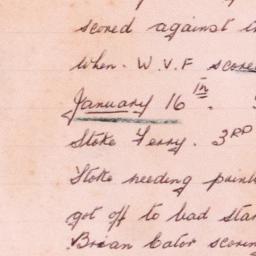 scored against
when. W.V.F scored
January 16th.
Stoke Ferry. 3RD
Stoke needing
got off to bad
Brian Cator